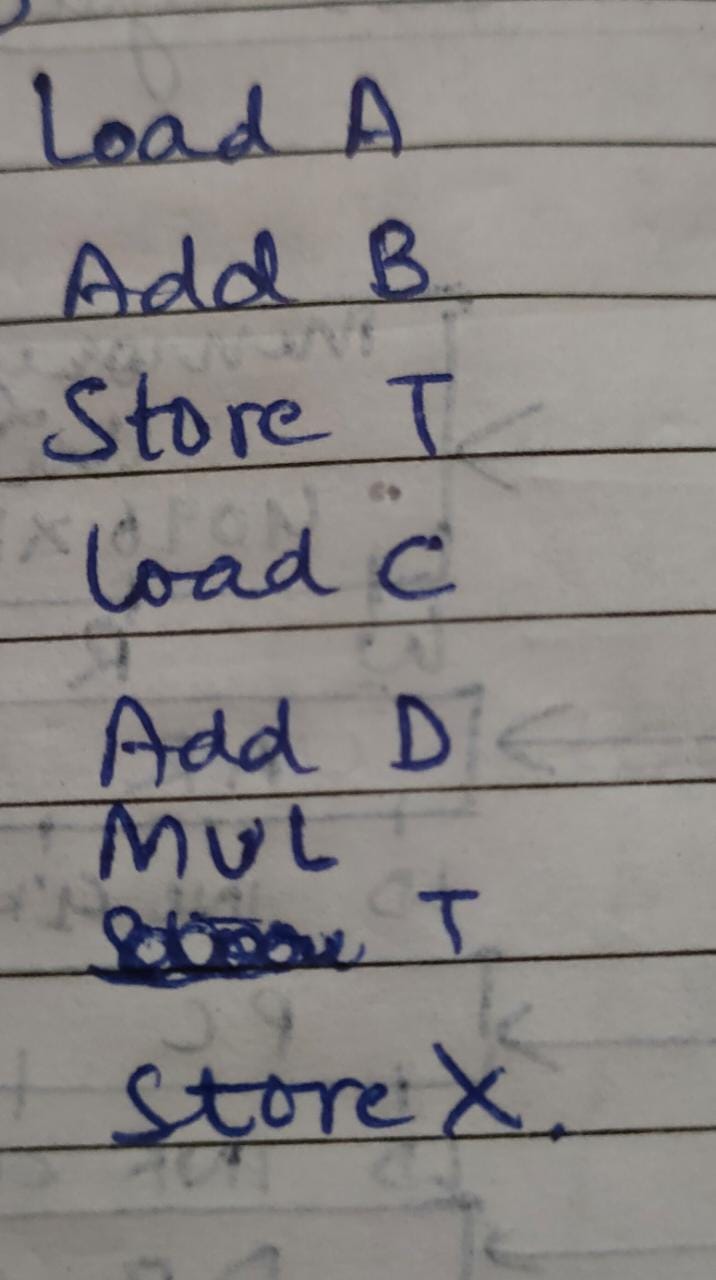 Load A
Add B
Store T
Load C
Add D
MUL
T
Store X.